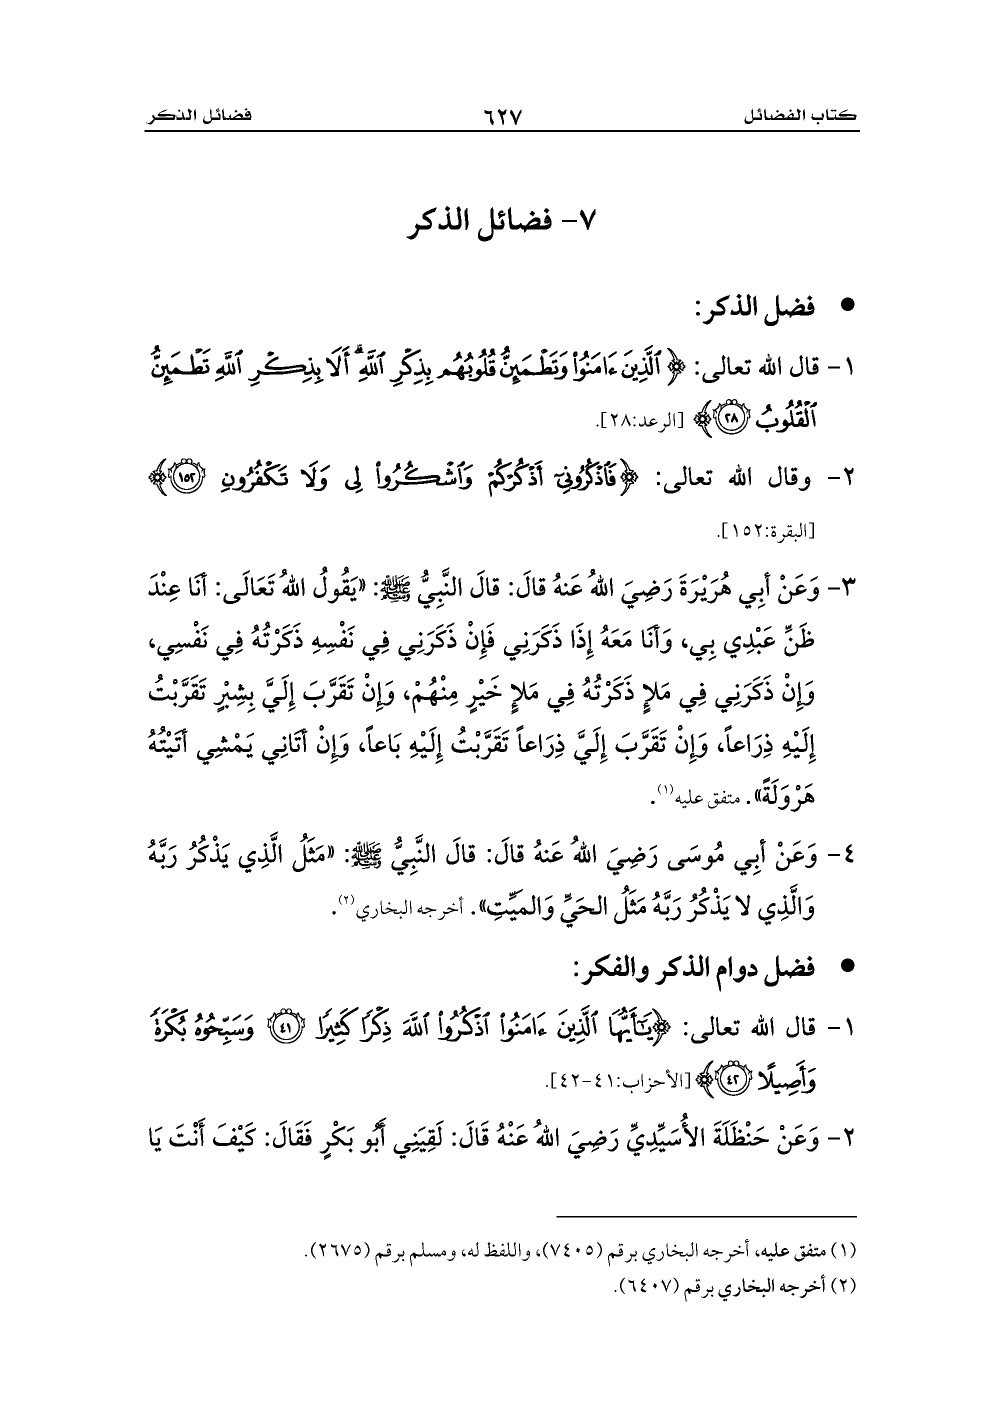 كتاب الفضائل ٦٢٧ فضائل الذكر
٧- فضائل الذكر
● فضل الذكر:
١- قال الله تعالى: ﴿ٱلَّذِينَ ءَامَنُوا۟ وَتَطْمَئِنُّ قُلُوبُهُم بِذِكْرِ ٱللَّهِ ۗ أَلَا بِذِكْرِ ٱللَّهِ تَطْمَئِنُّ
ٱلْقُلُوبُ ٢٨﴾ [الرعد:٢٨].
٢- وقال الله تعالى: ﴿فَٱذْكُرُونِىٓ أَذْكُرْكُمْ وَٱشْكُرُوا۟ لِى وَلَا تَكْفُرُونِ ١٥٢﴾
[البقرة:١٥٢].
٣- وَعَنْ أبِي هُرَيْرَةَ رَضِيَ اللهُ عَنهُ قالَ: قالَ النَّبِيُّ ﷺ: «يَقُولُ اللهُ تَعَالَى: أنَا عِنْدَ
ظَنِّ عَبْدِي بِي، وَأنَا مَعَهُ إِذَا ذَكَرَنِي فَإِنْ ذَكَرَنِي فِي نَفْسِهِ ذَكَرْتُهُ فِي نَفْسِي،
وَإِنْ ذَكَرَنِي فِي مَلإٍ ذَكَرْتُهُ فِي مَلإٍ خَيْرٍ مِنْهُمْ، وَإِنْ تَقَرَّبَ إِلَيَّ بِشِبْرٍ تَقَرَّبْتُ
إِلَيْهِ ذِرَاعاً، وَإِنْ تَقَرَّبَ إِلَيَّ ذِرَاعاً تَقَرَّبْتُ إِلَيْهِ بَاعاً، وَإِنْ أتَانِي يَمْشِي أتَيْتُهُ
هَرْوَلَةً». متفق عليه(١).
٤- وَعَنْ أبِي مُوسَى رَضِيَ اللهُ عَنهُ قالَ: قالَ النَّبِيُّ ﷺ: «مَثَلُ الَّذِي يَذْكُرُ رَبَّهُ
وَالَّذِي لا يَذْكُرُ رَبَّهُ مَثَلُ الحَيِّ وَالمَيِّتِ». أخرجه البخاري(٢).
● فضل دوام الذكر والفكر:
١- قال الله تعالى: ﴿يَٰٓأَيُّهَا ٱلَّذِينَ ءَامَنُوا۟ ٱذْكُرُوا۟ ٱللَّهَ ذِكْرًا كَثِيرًا ٤١ وَسَبِّحُوهُ بُكْرَةً
وَأَصِيلًا ٤٢﴾ [الأحزاب:٤١-٤٢].
٢- وَعَنْ حَنْظَلَةَ الأُسَيِّدِيِّ رَضِيَ اللهُ عَنْهُ قَالَ: لَقِيَنِي أَبُو بَكْرٍ فَقَالَ: كَيْفَ أَنْتَ يَا
(١) متفق عليه، أخرجه البخاري برقم (٧٤٠٥)، واللفظ له، ومسلم برقم (٢٦٧٥).
(٢) أخرجه البخاري برقم (٦٤٠٧).